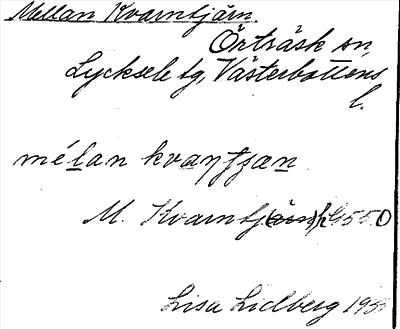 Mellan Kvarntjärn.
Örträsk sn,
Lycksele tg, Västerbottens
l.
mélan kvaɳtʃæn
M. Kvarntj(ärn)
Lisa Lidberg 19